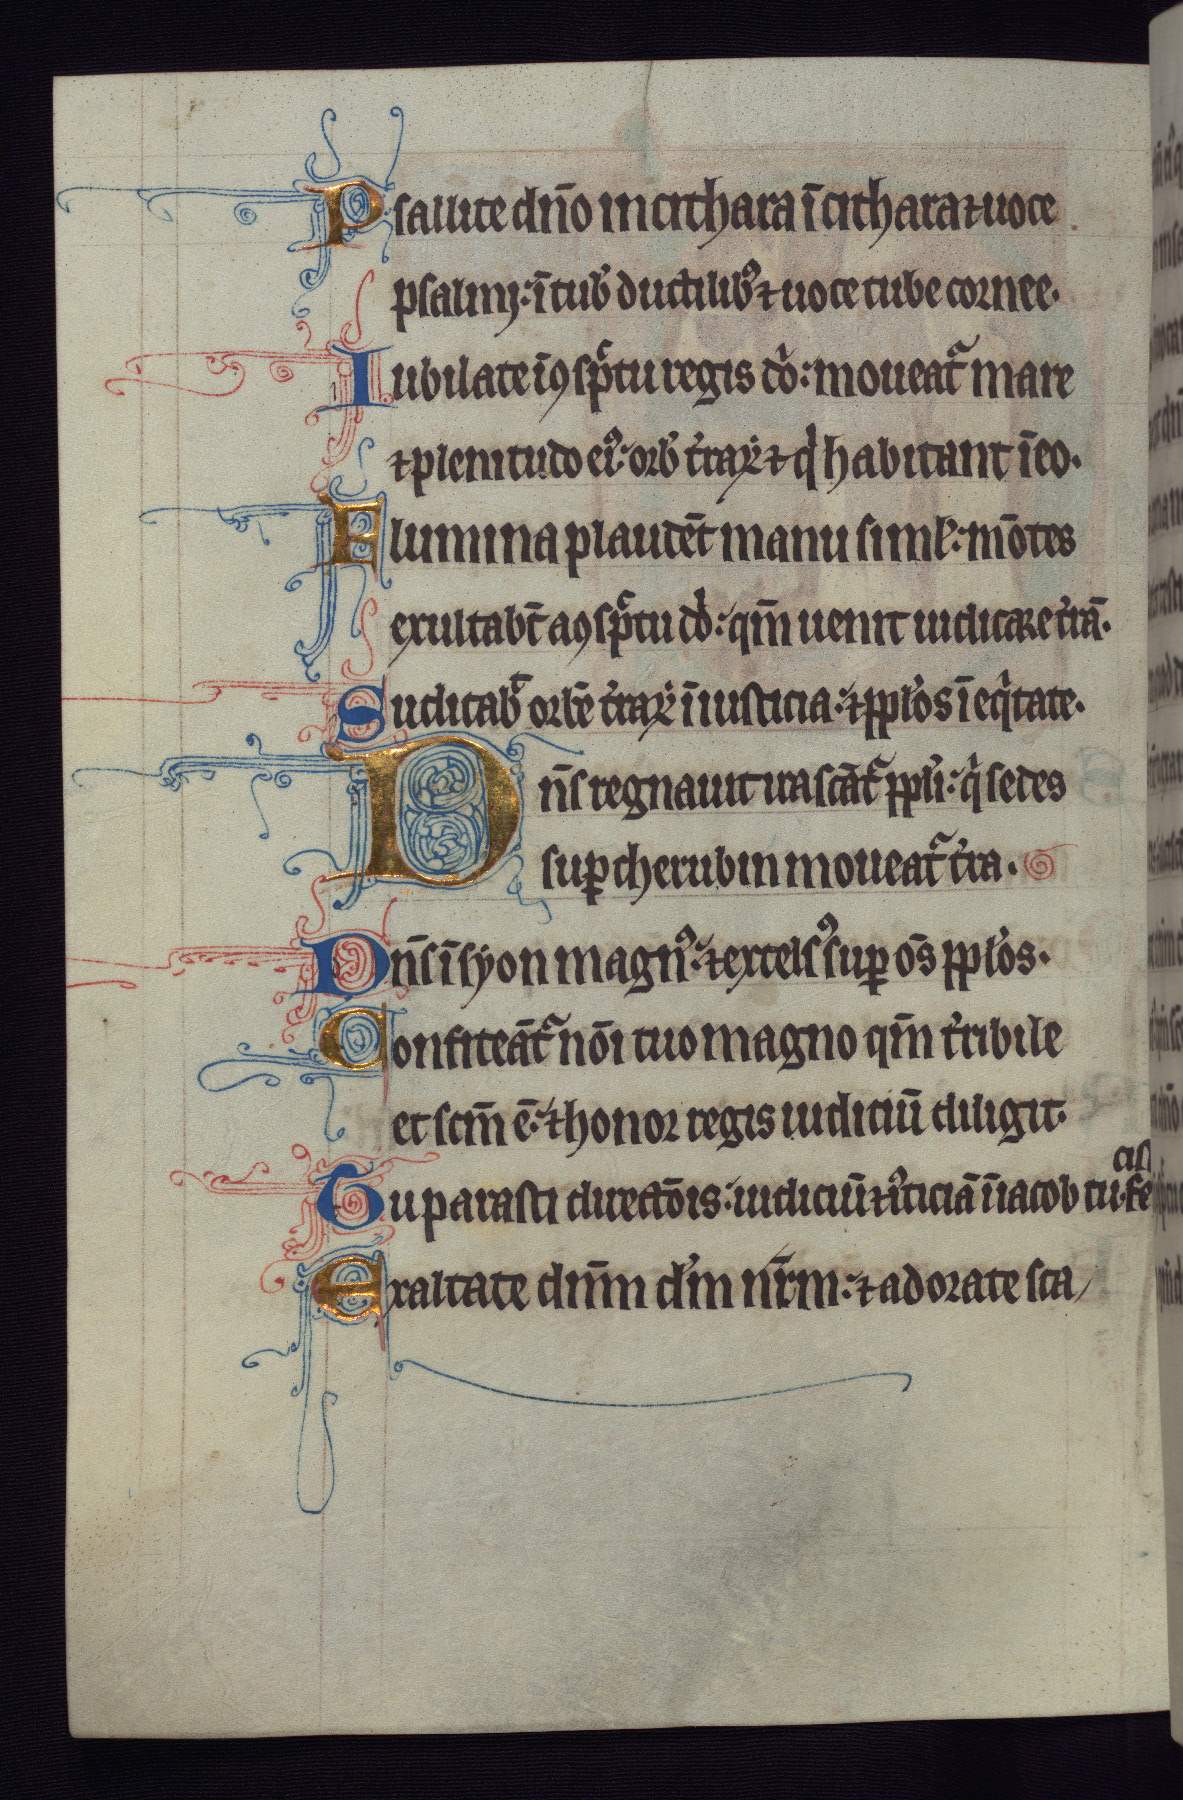 Psallite dn̄o in cithara ī cithara ⁊ uoce
psalmi: ī tub' ductilib⁹ ⁊ uoce tube cornee.
Iubilate ī ꝯspc̄tu regis dō: moueat᷑ mare
⁊ plenitudo ei⁹: orb' t'raꝝ ⁊ qⁱ habitant ī eo.
Flumina plaudēt manu siml': mōtes
exultabt̄ a ꝯspc̄tu dō: qm̄ uenit iudicare t'rā.
Iudicab᷑ orbē t'raꝝ ī iusticia: ⁊ ppl'os ī eqⁱtate.
Dn̄s regnauit irascāt᷑ ppl'i: qⁱ sedes
sup̄ cherubin moueat᷑ t'ra.
Dn̄s ī syon magn⁹: ⁊ excels⁹ sup̄ oēs ppl'os.
Confiteāt᷑ nōi tuo magno qm̄ t'ribile
et scm̄ ē: ⁊ honor regis iudiciū diligit.
cisti
Tu parasti directōis: iudiciū ⁊ iⁱticiā ī iacob tu fe
Exaltate dn̄m d'm nr̄m: ⁊ adorate sca